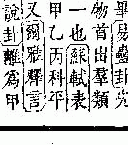 易蠱卦先
物首出羣類
一也蘇軾表
甲乙丙科平
又爾雅釋言
說卦離爲甲